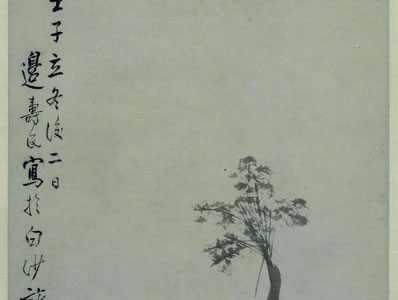 壬子立冬後二日
邊壽民寫於白沙旅